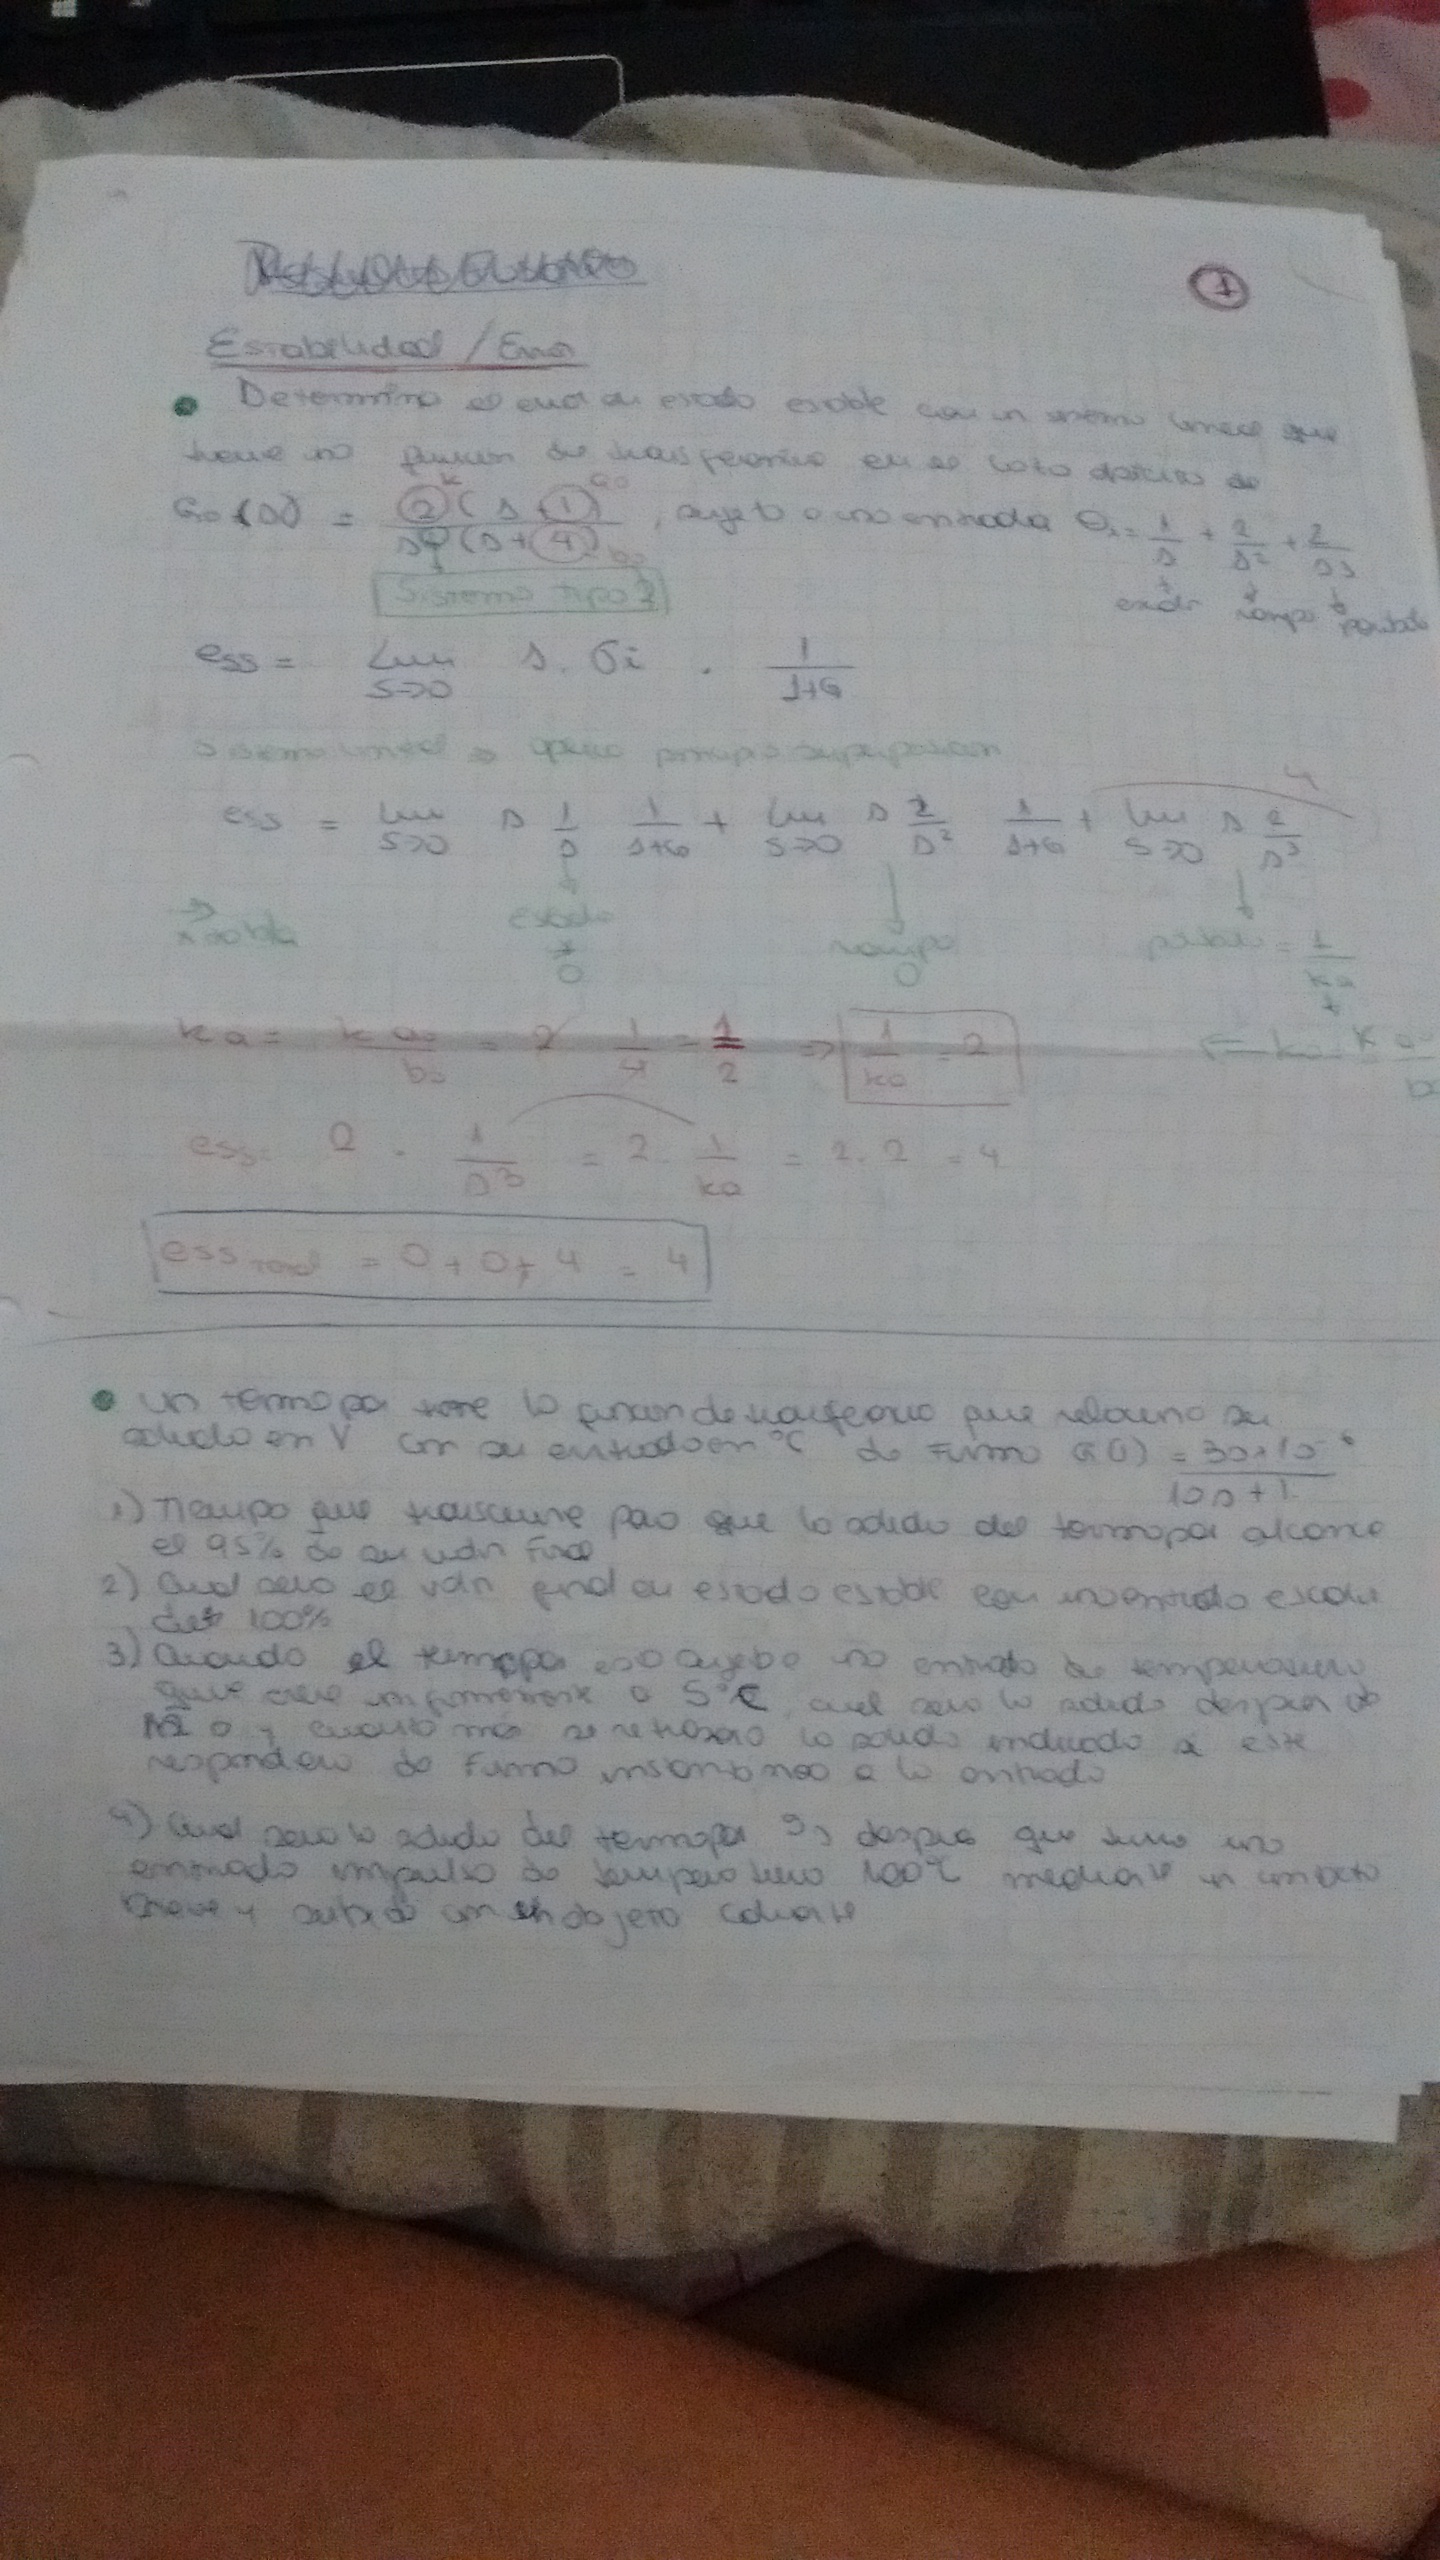 1
Estabilidad / Error
Determina el error en estado estable con un sistema lineal que
tiene una función de transferencia en lazo abierto de
Go(s) = 2 (s + 1) / s² (s + 4), sujeto a una entrada θi = 1/s + 2/s² + 2/s³
k a0 b0
Sistema tipo 2
escalón rampa parábola
ess = Lim s→0 s · θi · 1/1+G
Sistema lineal → aplico principio superposición
4
ess = lim s→0 s 1/s 1/1+G + lim s→0 s 2/s² 1/1+G + lim s→0 s 2/s³
→ tabla escalón → 0 rampa 0 parábola = 1/ka
ka = k a0/b0 = 2 1/4 = 1/2 ⇒ 1/ka = 2 ← ka = k a0/b0
ess = 2 · 1/s³ = 2 · 1/ka = 2 · 2 = 4
ess total = 0 + 0 + 4 = 4
Un termopar tiene la función de transferencia que relaciona su
salida en V con su entrada en °C de forma G(s) = 30×10⁻⁶ / 10s + 1
1) Tiempo que transcurre para que la salida del termopar alcance
el 95% de su valor final
2) Cual sera el valor final en estado estable con una entrada escalón
de 100%
3) Cuando el termopar esta sujeto una entrada de temperatura
que crece 5°C, cual sera la salida despues de
12 s y cuanto mas se retrasara la salida indicada a este
respondera de forma instantanea a la entrada
4) Cual sera la salida del termopar 9s despues que tiene una
entrada impulso de temperatura 100°C mediante un contacto
breve y subito con un objeto caliente